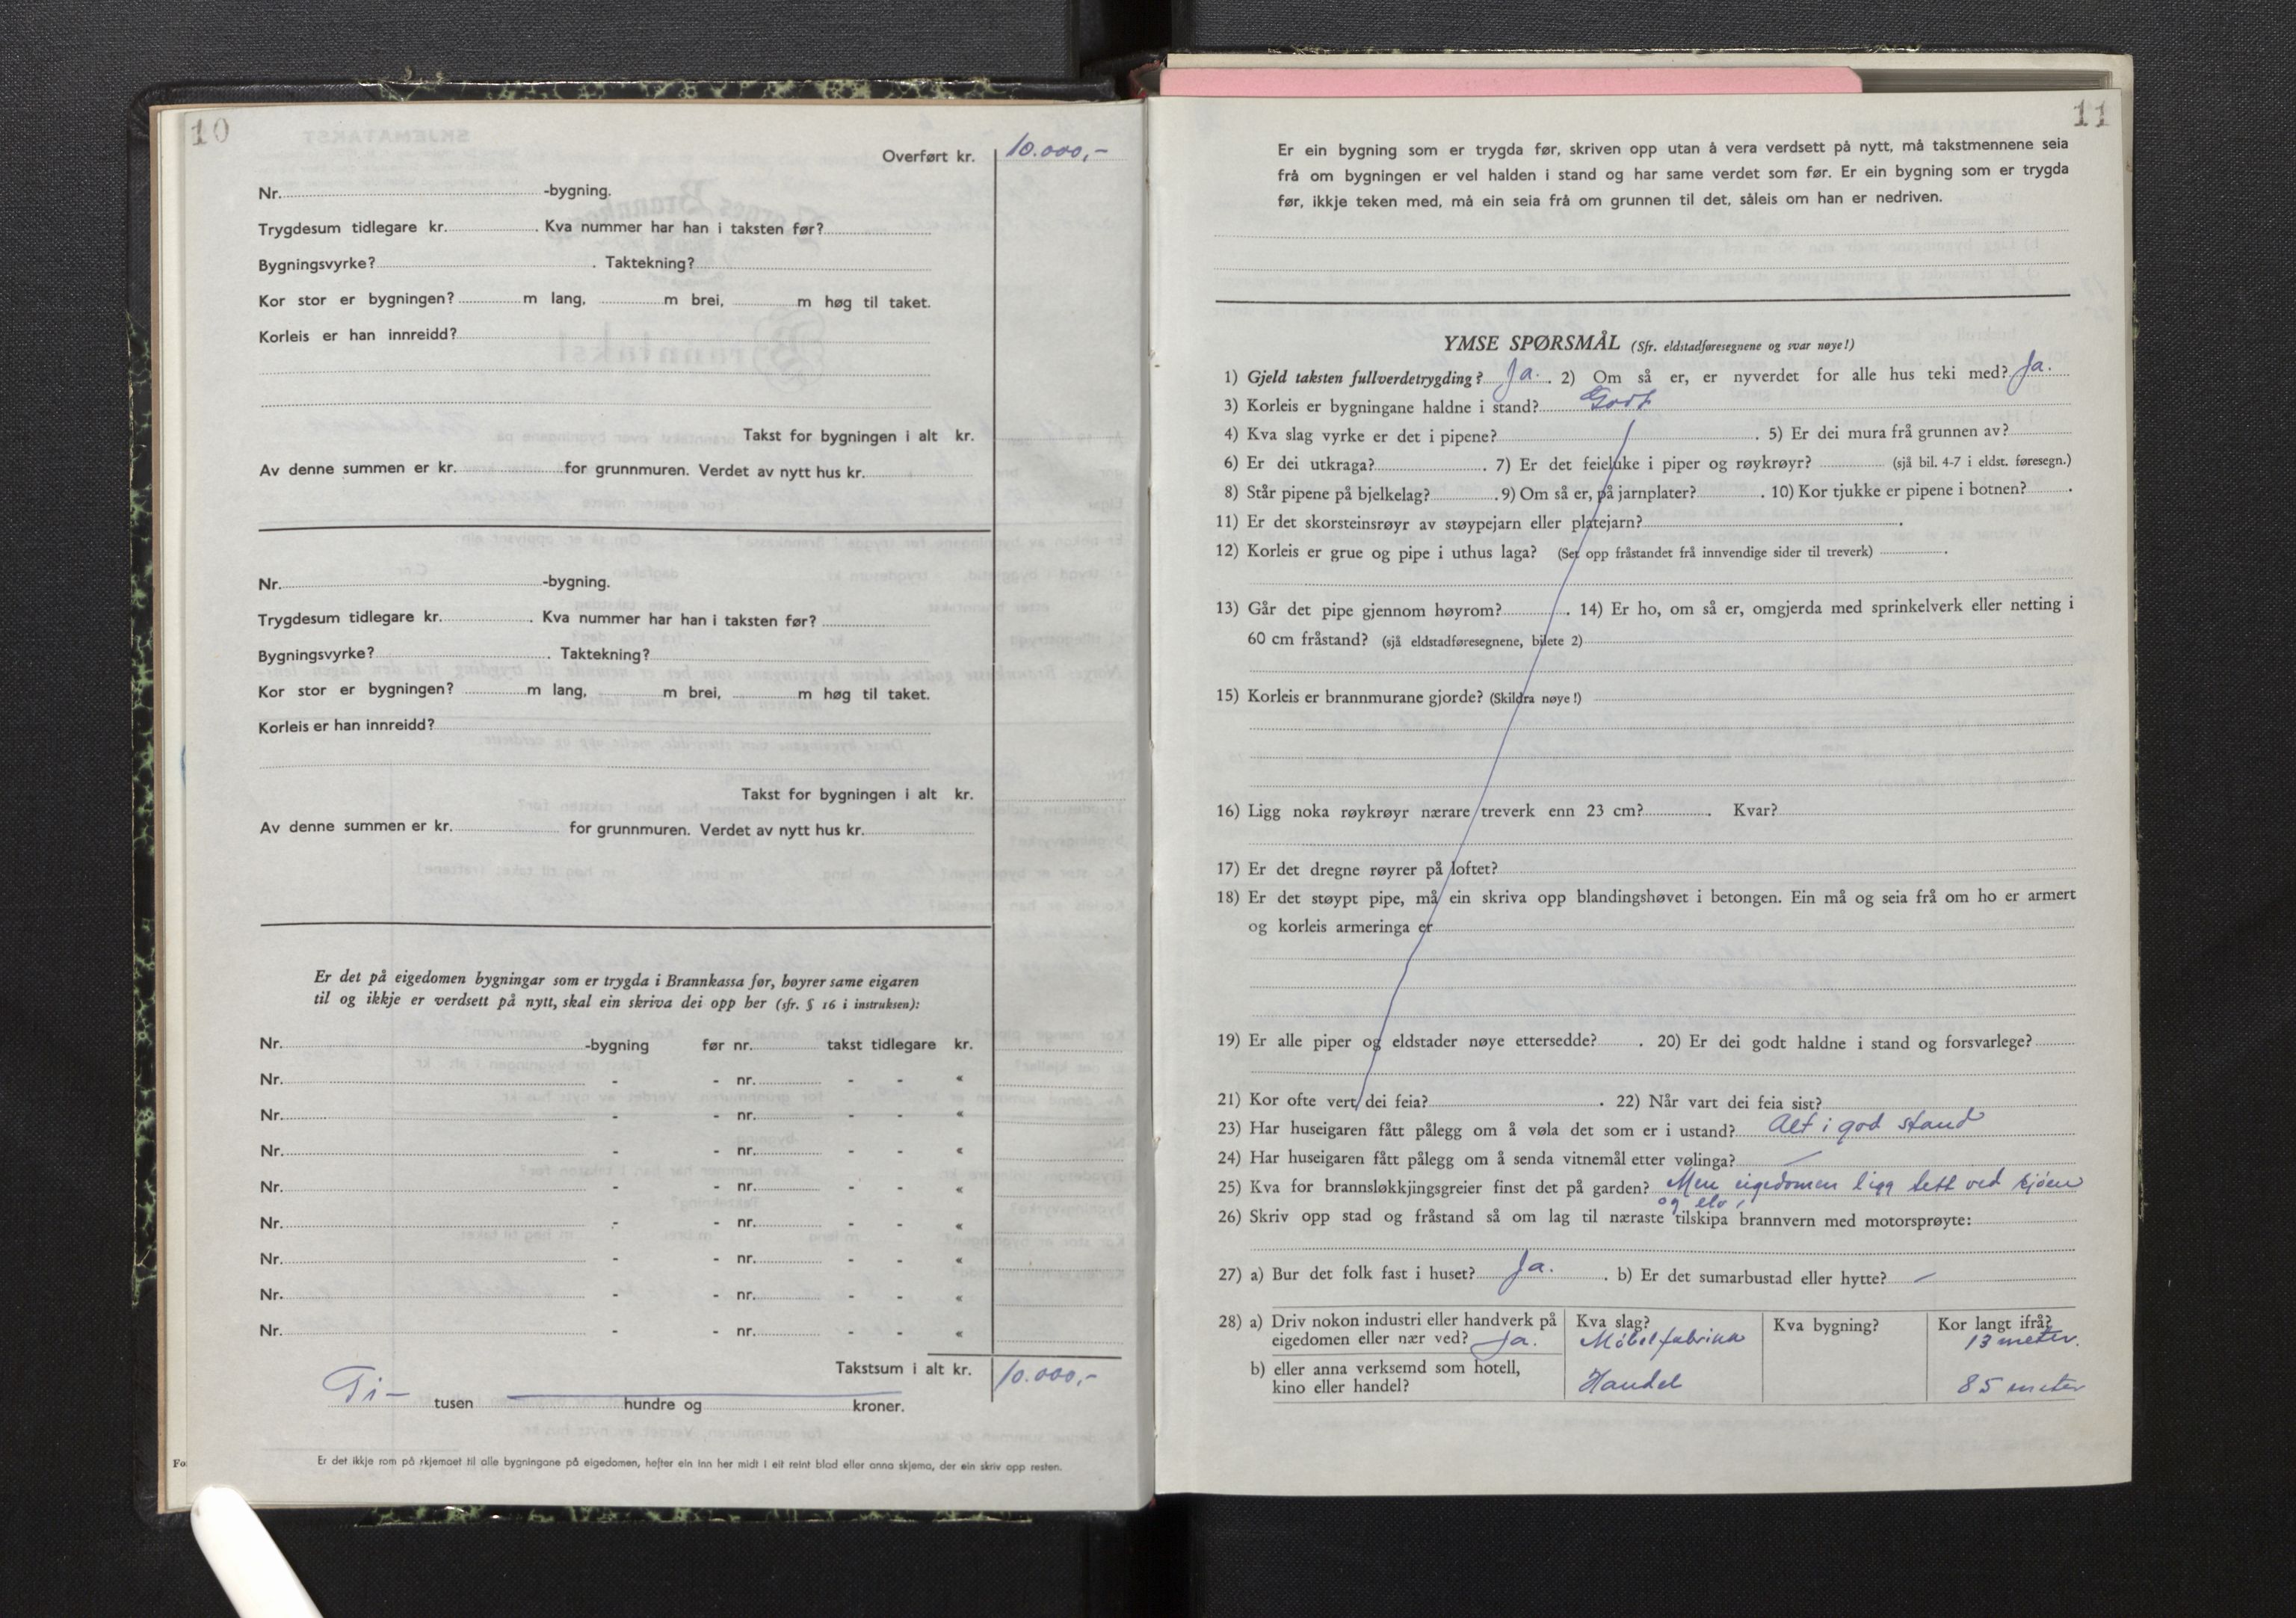 10
Overført kr. 10.000,-
Nr. -bygning.
Trygdesum tidlegare kr. . Kva nummer har han i taksten før?
Bygningsvyrke? . Taktekning?
Kor stor er bygningen? m lang, m brei, m høg til taket.
Korleis er han innreidd?
Takst for bygningen i alt kr.
Av denne summen er kr. for grunnmuren. Verdet av nytt hus kr.
Nr. -bygning.
Trygdesum tidlegare kr. . Kva nummer har han i taksten før?
Bygningsvyrke? . Taktekning?
Kor stor er bygningen? m lang, m brei, m høg til taket.
Korleis er han innreidd?
Takst for bygningen i alt kr.
Av denne summen er kr. for grunnmuren. Verdet av nytt hus kr.
Er det på eigedomen bygningar som er trygda i Brannkassa før, høyrer same eigaren
til og ikkje er verdsett på nytt, skal ein skriva dei opp her (sfr. § 16 i instruksen):
Nr. -bygning før nr. takst tidlegare kr.
Nr. - - nr. - - «
Nr. - - nr. - - «
Nr. - - nr. - - «
Nr. - - nr. - - «
Nr. - - nr. - - «
Nr. - - nr. - - «
Nr. - - nr. - - «
Nr. - - nr. - - «
Takstsum i alt kr. 10.000,-
Ti- tusen hundre og kroner.
Fo
Er det ikkje rom på skjemaet til alle bygningane på eigedomen, hefter ein inn her midt i eit reint blad eller anna skjema, der ein skriv opp resten.
11
Er ein bygning som er trygda før, skriven opp utan å vera verdsett på nytt, må takstmennene seia
frå om bygningen er vel halden i stand og har same verdet som før. Er ein bygning som er trygda
før, ikkje teken med, må ein seia frå om grunnen til det, såleis om han er nedriven.
YMSE SPØRSMÅL (Sfr. eldstadføresegnene og svar nøye!)
1) Gjeld taksten fullverdetrygding? Ja. . 2) Om så er, er nyverdet for alle hus teki med? Ja.
3) Korleis er bygningane haldne i stand? Godt
4) Kva slag vyrke er det i pipene? . 5) Er dei mura frå grunnen av?
6) Er dei utkraga? . 7) Er det feieluke i piper og røykrøyr? (sjå bil. 4-7 i eldst. føresegn.)
8) Står pipene på bjelkelag? . 9) Om så er, på jarnplater? . 10) Kor tjukke er pipene i botnen? .
11) Er det skorsteinsrøyr av støypejarn eller platejarn? .
12) Korleis er grue og pipe i uthus laga? (Set opp fråstandet frå innvendige sider til treverk) .
13) Går det pipe gjennom høyrom? . 14) Er ho, om så er, omgjerda med sprinkelverk eller netting i
60 cm fråstand? (sjå eldstadføresegnene, bilete 2)
15) Korleis er brannmurane gjorde? (Skildra nøye!)
16) Ligg noka røykrøyr nærare treverk enn 23 cm? . Kvar?
17) Er det dregne røyrer på loftet?
18) Er det støypt pipe, må ein skriva opp blandingshøvet i betongen. Ein må og seia frå om ho er armert
og korleis armeringa er
19) Er alle piper og eldstader nøye ettersedde? . 20) Er dei godt haldne i stand og forsvarlege?
21) Kor ofte vert dei feia? . 22) Når vart dei feia sist?
23) Har huseigaren fått pålegg om å vøla det som er i ustand? Alt i god stand
24) Har huseigaren fått pålegg om å senda vitnemål etter vølinga? —
25) Kva for brannsløkkjingsgreier finst det på garden? Men eigedomen ligg tett ved sjøen
og elv.
26) Skriv opp stad og fråstand så om lag til næraste tilskipa brannvern med motorsprøyte:
27) a) Bur det folk fast i huset? Ja. . b) Er det sumarbustad eller hytte? —
28) a) Driv nokon industri eller handverk på Kva slag? Kva bygning? Kor langt ifrå?
eigedomen eller nær ved? Ja. Møbelfabrikk 13 meter.
b) eller anna verksemd som hotell,
kino eller handel? Handel 85 meter